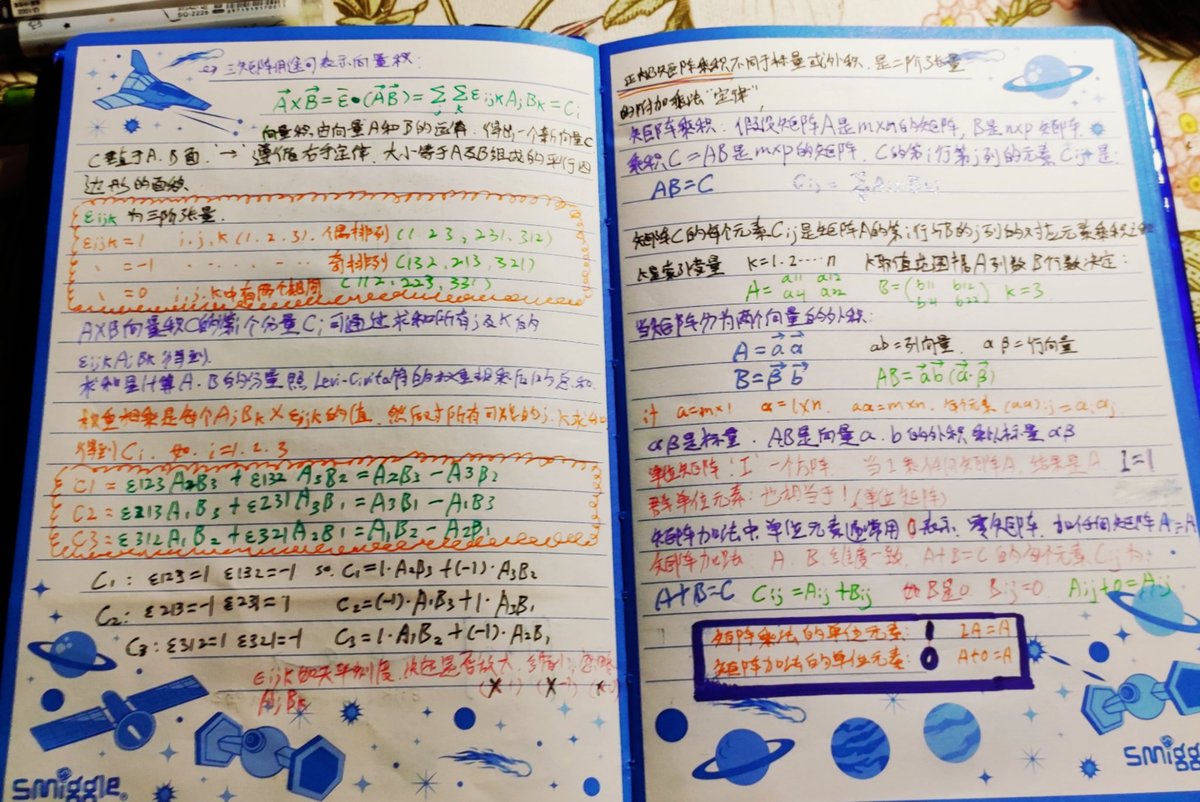 三矩阵用途可表示向量积:
A×B = ε•(AB) = Σ Σ εijk Aj Bk = Ci
j k
向量积由向量A和B的运算. 得出一个新向量C
C垂直于A.B面. "→" 遵循右手定律. 大小等于A及B组成的平行四
边形的面积.
εijk 为三阶张量.
εijk = 1 i.j.k (1.2.3). 偶排列 (123, 231, 312)
= -1 奇排列 (132, 213, 321)
= 0 i.j.k中有两个相同 (112, 223, 331)
A×B向量积C的第i个分量Ci可通过求和所有j及K的
εijk AjBk 得到.
求和是计算A.B的分量照 Levi-Civita符的权重相乘后的总和.
权重相乘是每个AjBk × εijk的值. 然后对所有可能的j.k求和
得到Ci. 如. i=1.2.3
C1 = ε123 A2B3 + ε132 A3B2 = A2B3 - A3B2
C2 = ε213 A1B3 + ε231 A3B1 = A3B1 - A1B3
C3 = ε312 A1B2 + ε321 A2B1 = A1B2 - A2B1
C1: ε123=1 ε132=-1 so. C1=1·A2B3+(-1)·A3B2
C2: ε213=-1 ε231=1 C2=(-1)·A1B3+1·A3B1
C3: ε312=1 ε321=-1 C3=1·A1B2+(-1)·A2B1
εijk 如天平刻度, 决定是否放大、缩小、忽略
AjBk (×1) (×-1) (×0)
smiggle
矩阵乘积不同于标量或外积. 是二阶张量
的附加乘法"定律",
矩阵乘积: 假设矩阵A是m×n的矩阵, B是n×p矩阵.
乘积C=AB是m×p的矩阵. C的第i行第j列的元素Cij是:
AB=C
矩阵C的每个元素Cij是矩阵A的第i行与B的j列的对应元素乘积之和
K是索引变量 k=1.2…n K取值范围据A列数B行数决定:
A = a11 a12 B = (b11 b12 k=3
a21 a22 b21 b22)
当矩阵分为两个向量的外积:
A = a α ab=列向量. αβ=行向量
B = β b AB = ab(α·β)
if a=m×1 α=1×n. aα=m×n. 每个元素 (aα)ij = aiαj
αβ是标量. AB是向量a.b的外积乘以标量αβ
单位矩阵"I" 一个方阵. 当I乘任何矩阵A, 结果是A I=1
单位元素: 也相当于1 (单位矩阵)
矩阵加法中单位元素通常用0表示. 零矩阵. 加任何矩阵A=A
矩阵加法: A.B维度一致. A+B=C的每个元素Cij为:
A+B=C Cij=Aij+Bij 如B是0 Bij=0 Aij+0=Aij
矩阵乘法的单位元素: 1 IA=A
矩阵加法的单位元素: 0 A+0=A
smiggle